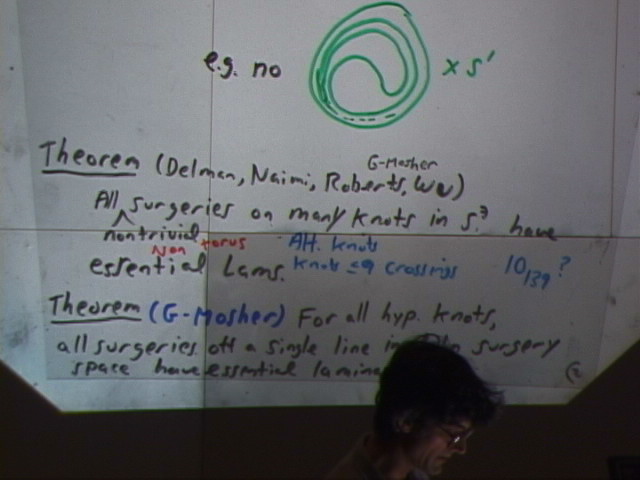 e.g. no × S'
Theorem (Delman, Naimi, Roberts, Wu)
G-Mosher
All surgeries on many knots in S³ have
nontrivial
Non torus
Alt. knots
essential Lams. knots ≤9 crossings 10₁₃₉?
Theorem (G-Mosher) For all hyp. knots,
all surgeries off a single line in surgery
space have essential lamina